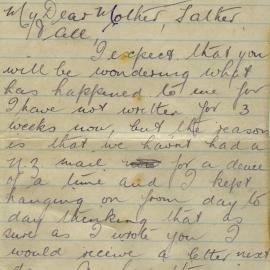 My Dear Mother, Father,
& all,
I expect that you
will be wondering what
has happened to me for
I have not written for 3
weeks now, but the reason
is that we havnt had a
N.Z mail for a deuce
of a time and I kept
hanging on from day to
day thinking that as
sure as I wrote you I
would receive a letter next